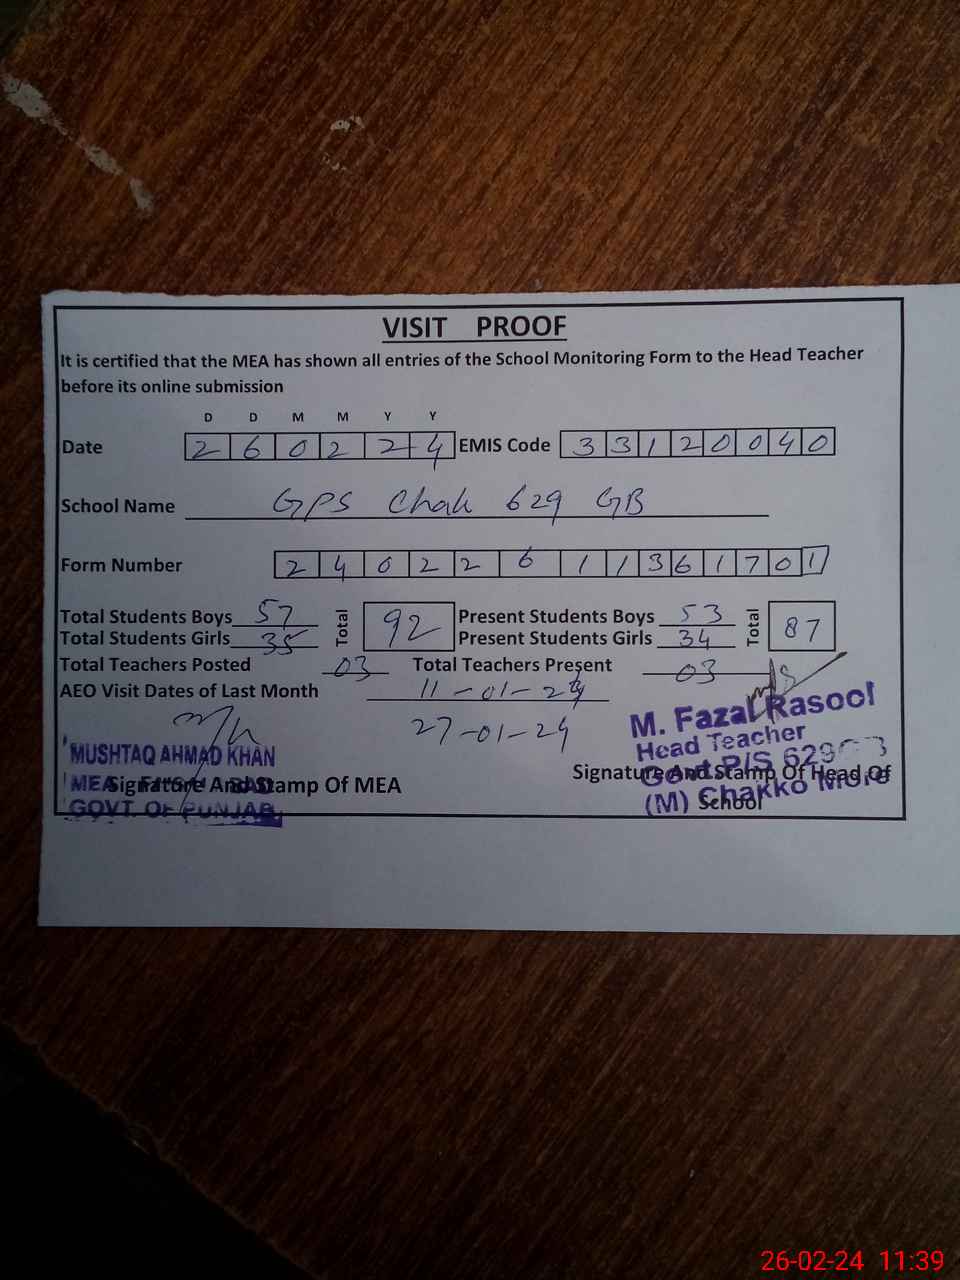 VISIT PROOF
It is certified that the MEA has shown all entries of the School Monitoring Form to the Head Teacher
before its online submission
D D M M Y Y
Date 2 6 0 2 2 4 EMIS Code 3 3 1 2 0 0 4 0
School Name GPS Chak 629 GB
Form Number 2 4 0 2 2 6 1 1 3 6 1 7 0 1
Total Students Boys 57 Total 92 Present Students Boys 53 Total 87
Total Students Girls 35 Present Students Girls 34
Total Teachers Posted 03 Total Teachers Present 03
AEO Visit Dates of Last Month 11-01-24
27-01-24
M. Fazal Rasool
Head Teacher
Govt P/S 629 GB
(M) Chakko More
MUSHTAQ AHMAD KHAN
MEA
GOVT. OF PUNJAB
Signature And Stamp Of MEA
Signature And Stamp Of Head Of
School
26-02-24 11:39